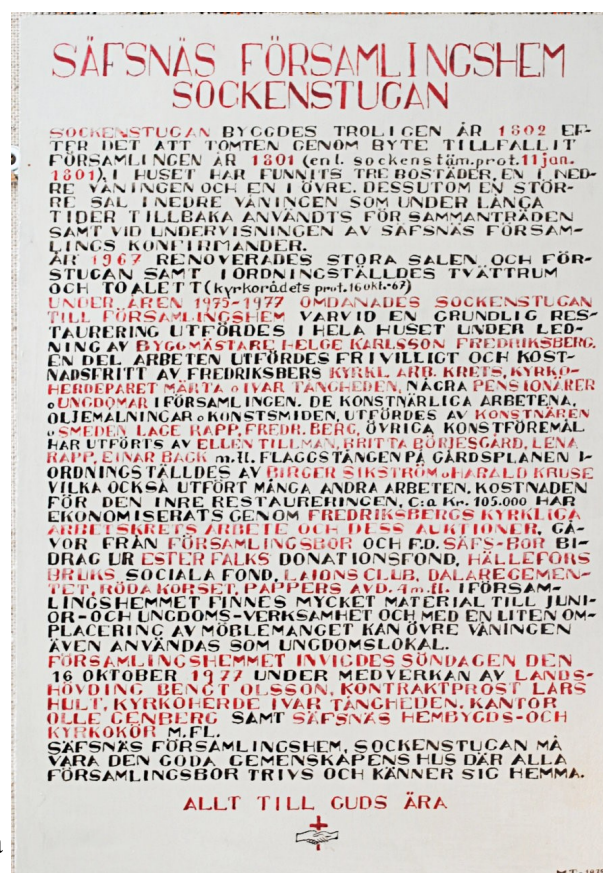 SÄFSNÄS FÖRSAMLINGSHEM
SOCKENSTUGAN
SOCKENSTUGAN BYGGDES TROLIGEN ÅR 1802 EF-
TER DET ATT TOMTEN GENOM BYTE TILLFALLIT
FÖRSAMLINGEN ÅR 1801 (enl. sockenstäm.prot. 11 jan.
1801). I HUSET HAR FUNNITS TRE BOSTÄDER, EN I NED-
RE VÅNINGEN OCH EN I ÖVRE. DESSUTOM EN STÖR-
RE SAL I NEDRE VÅNINGEN SOM UNDER LÅNGA
TIDER TILLBAKA ANVÄNDTS FÖR SAMMANTRÄDEN
SAMT VID UNDERVISNINGEN AV SÄFSNÄS FÖRSAM-
LINGS KONFIRMANDER.
ÅR 1967 RENOVERADES STORA SALEN OCH FÖR-
STUGAN SAMT IORDNINGSTÄLLDES TVÄTTRUM
OCH TOALETT (kyrkorådets prot. 16 okt.-67)
UNDER ÅREN 1975-1977 OMDANADES SOCKENSTUGAN
TILL FÖRSAMLINGSHEM VARVID EN GRUNDLIG RES-
TAURERING UTFÖRDES I HELA HUSET UNDER LED-
NING AV BYGGMÄSTARE HELGE KARLSSON FREDRIKSBERG.
EN DEL ARBETEN UTFÖRDES FRIVILLIGT OCH KOST-
NADSFRITT AV FREDRIKSBERS KYRKL. ARB. KRETS, KYRKO-
HERDEPARET MÄRTA o IVAR TÄNGHEDEN, NÅGRA PENSIONÄRER
o UNGDOMAR I FÖRSAMLINGEN. DE KONSTNÄRLIGA ARBETENA,
OLJEMÅLNINGAR o KONSTSMIDEN, UTFÖRDES AV KONSTNÄREN
o SMEDEN LAGE RAPP, FREDR. BERG, ÖVRIGA KONSTFÖREMÅL
HAR UTFÖRTS AV ELLEN TILLMAN, BRITTA BÖRJESGÅRD, LENA
RAPP, EINAR BACK m.fl. FLAGGSTÅNGEN PÅ GÅRDSPLANEN I-
ORDNINGSTÄLLDES AV BIRGER SIKSTRÖM o HARALD KRUSE
VILKA OCKSÅ UTFÖRT MÅNGA ANDRA ARBETEN. KOSTNADEN
FÖR DEN INRE RESTAURERINGEN, C:a Kr. 105.000 HAR
EKONOMISERATS GENOM FREDRIKSBERGS KYRKLIGA
ARBETSKRETS ARBETE OCH DESS AUKTIONER, GÅ-
VOR FRÅN FÖRSAMLINGSBOR OCH F.D. SÄFS-BOR BI-
DRAG UR ESTER FALKS DONATIONSFOND, HÄLLEFORS
BRUKS SOCIALA FOND, LAIONS CLUB, DALAREGEMEN-
TET, RÖDA KORSET, PAPPERS AVD. 4 m.fl. I FÖRSAM-
LINGSHEMMET FINNES MYCKET MATERIAL TILL JUNI-
OR- OCH UNGDOMS-VERKSAMHET OCH MED EN LITEN OM-
PLACERING AV MÖBLEMANGET KAN ÖVRE VÅNINGEN
ÄVEN ANVÄNDAS SOM UNGDOMSLOKAL.
FÖRSAMLINGSHEMMET INVIGDES SÖNDAGEN DEN
16 OKTOBER 1977 UNDER MEDVERKAN AV LANDS-
HÖVDING BENGT OLSSON, KONTRAKTPROST LARS
HULT, KYRKOHERDE IVAR TÄNGHEDEN, KANTOR
OLLE GENBERG SAMT SÄFSNÄS HEMBYGDS- OCH
KYRKOKÖR M.FL.
SÄFSNÄS FÖRSAMLINGSHEM, SOCKENSTUGAN MÅ
VARA DEN GODA GEMENSKAPENS HUS DÄR ALLA
FÖRSAMLINGSBOR TRIVS OCH KÄNNER SIG HEMMA.
ALLT TILL GUDS ÄRA